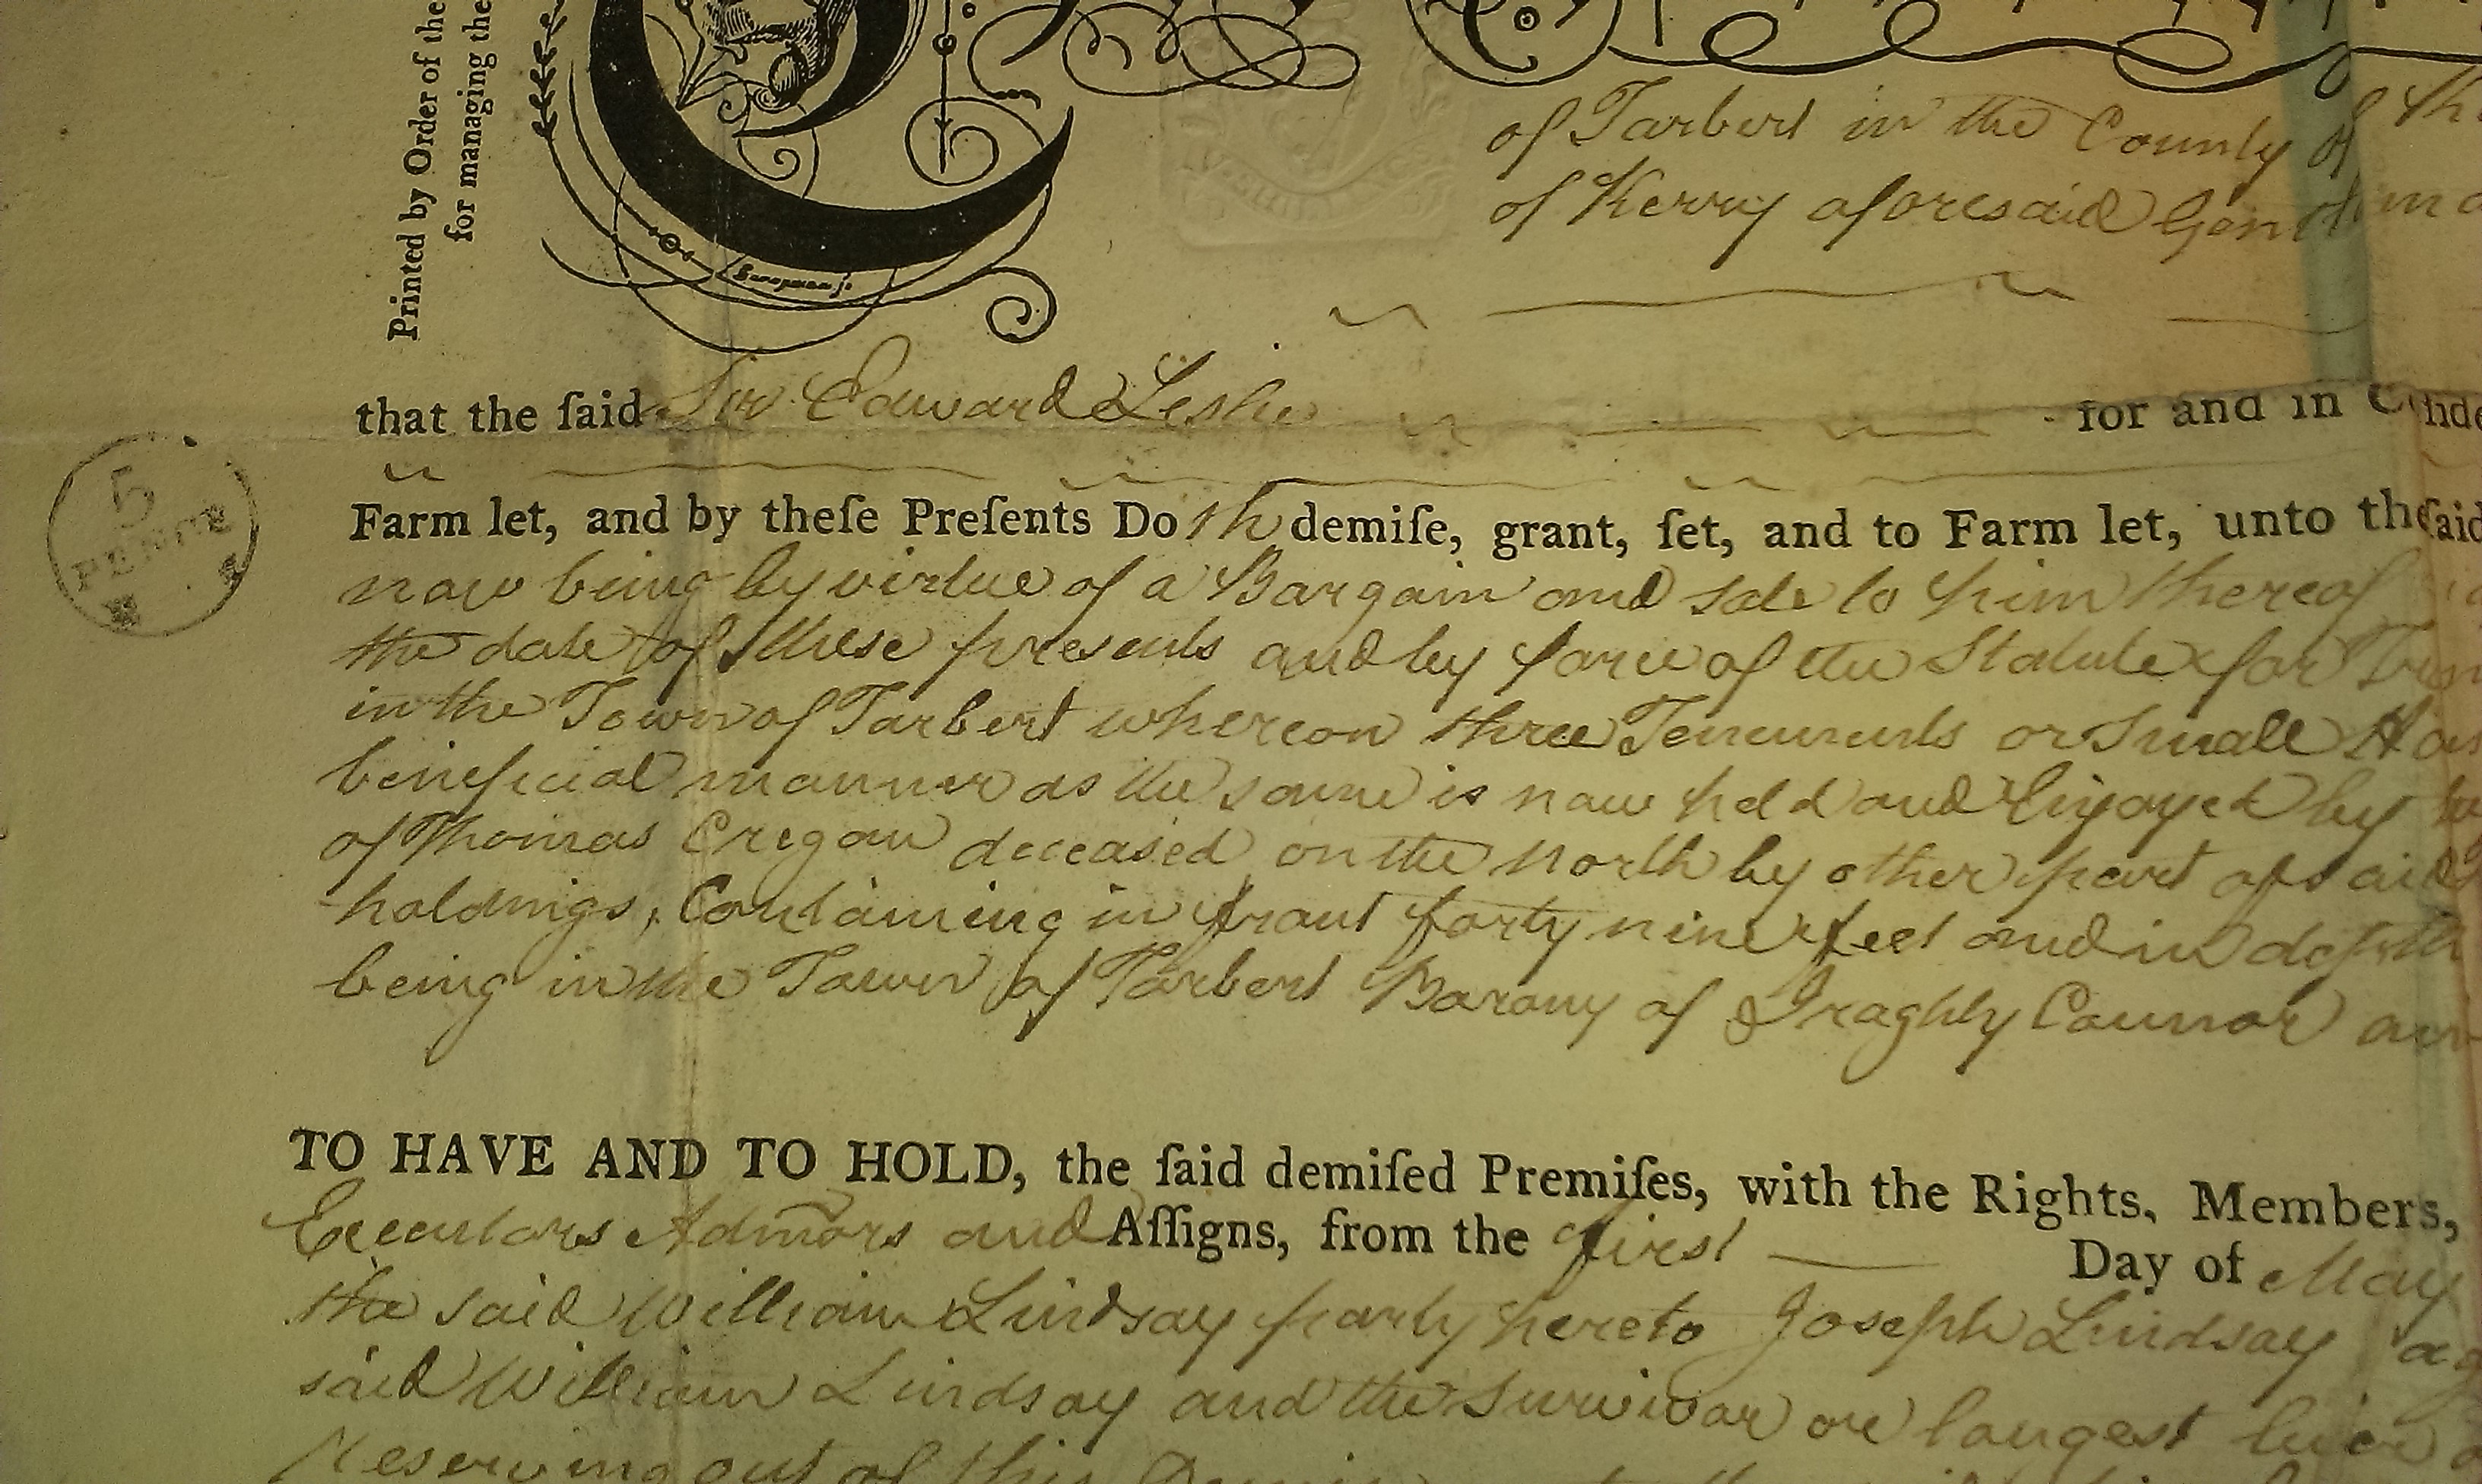 Printed by Order of the
for managing the
of Tarbert in the County of
of Kerry aforesaid Gent
that the ſaid Sir Edward Leslie for and in
Farm let, and by theſe Preſents Doth demiſe, grant, ſet, and to Farm let, unto the ſaid
now being by virtue of a Bargain and sale to him thereof
the date of these presents and by force of the Statute for
in the Town of Tarbert whereon three Tenements or Small
beneficial manner as the same is now held and Enjoyed by
of Thomas Cregan deceased on the North by other part of said
holdings, Containing in front forty nine feet and in depth
being in the Town of Tarbert Barony of Iraghty Connor
TO HAVE AND TO HOLD, the ſaid demiſed Premiſes, with the Rights, Members,
Executors Admors and Aſſigns, from the first Day of May
the said William Lindsay party hereto Joseph Lindsay
said William Lindsay and the Survivor or longest liver
Reserving out of this
5
PENCE